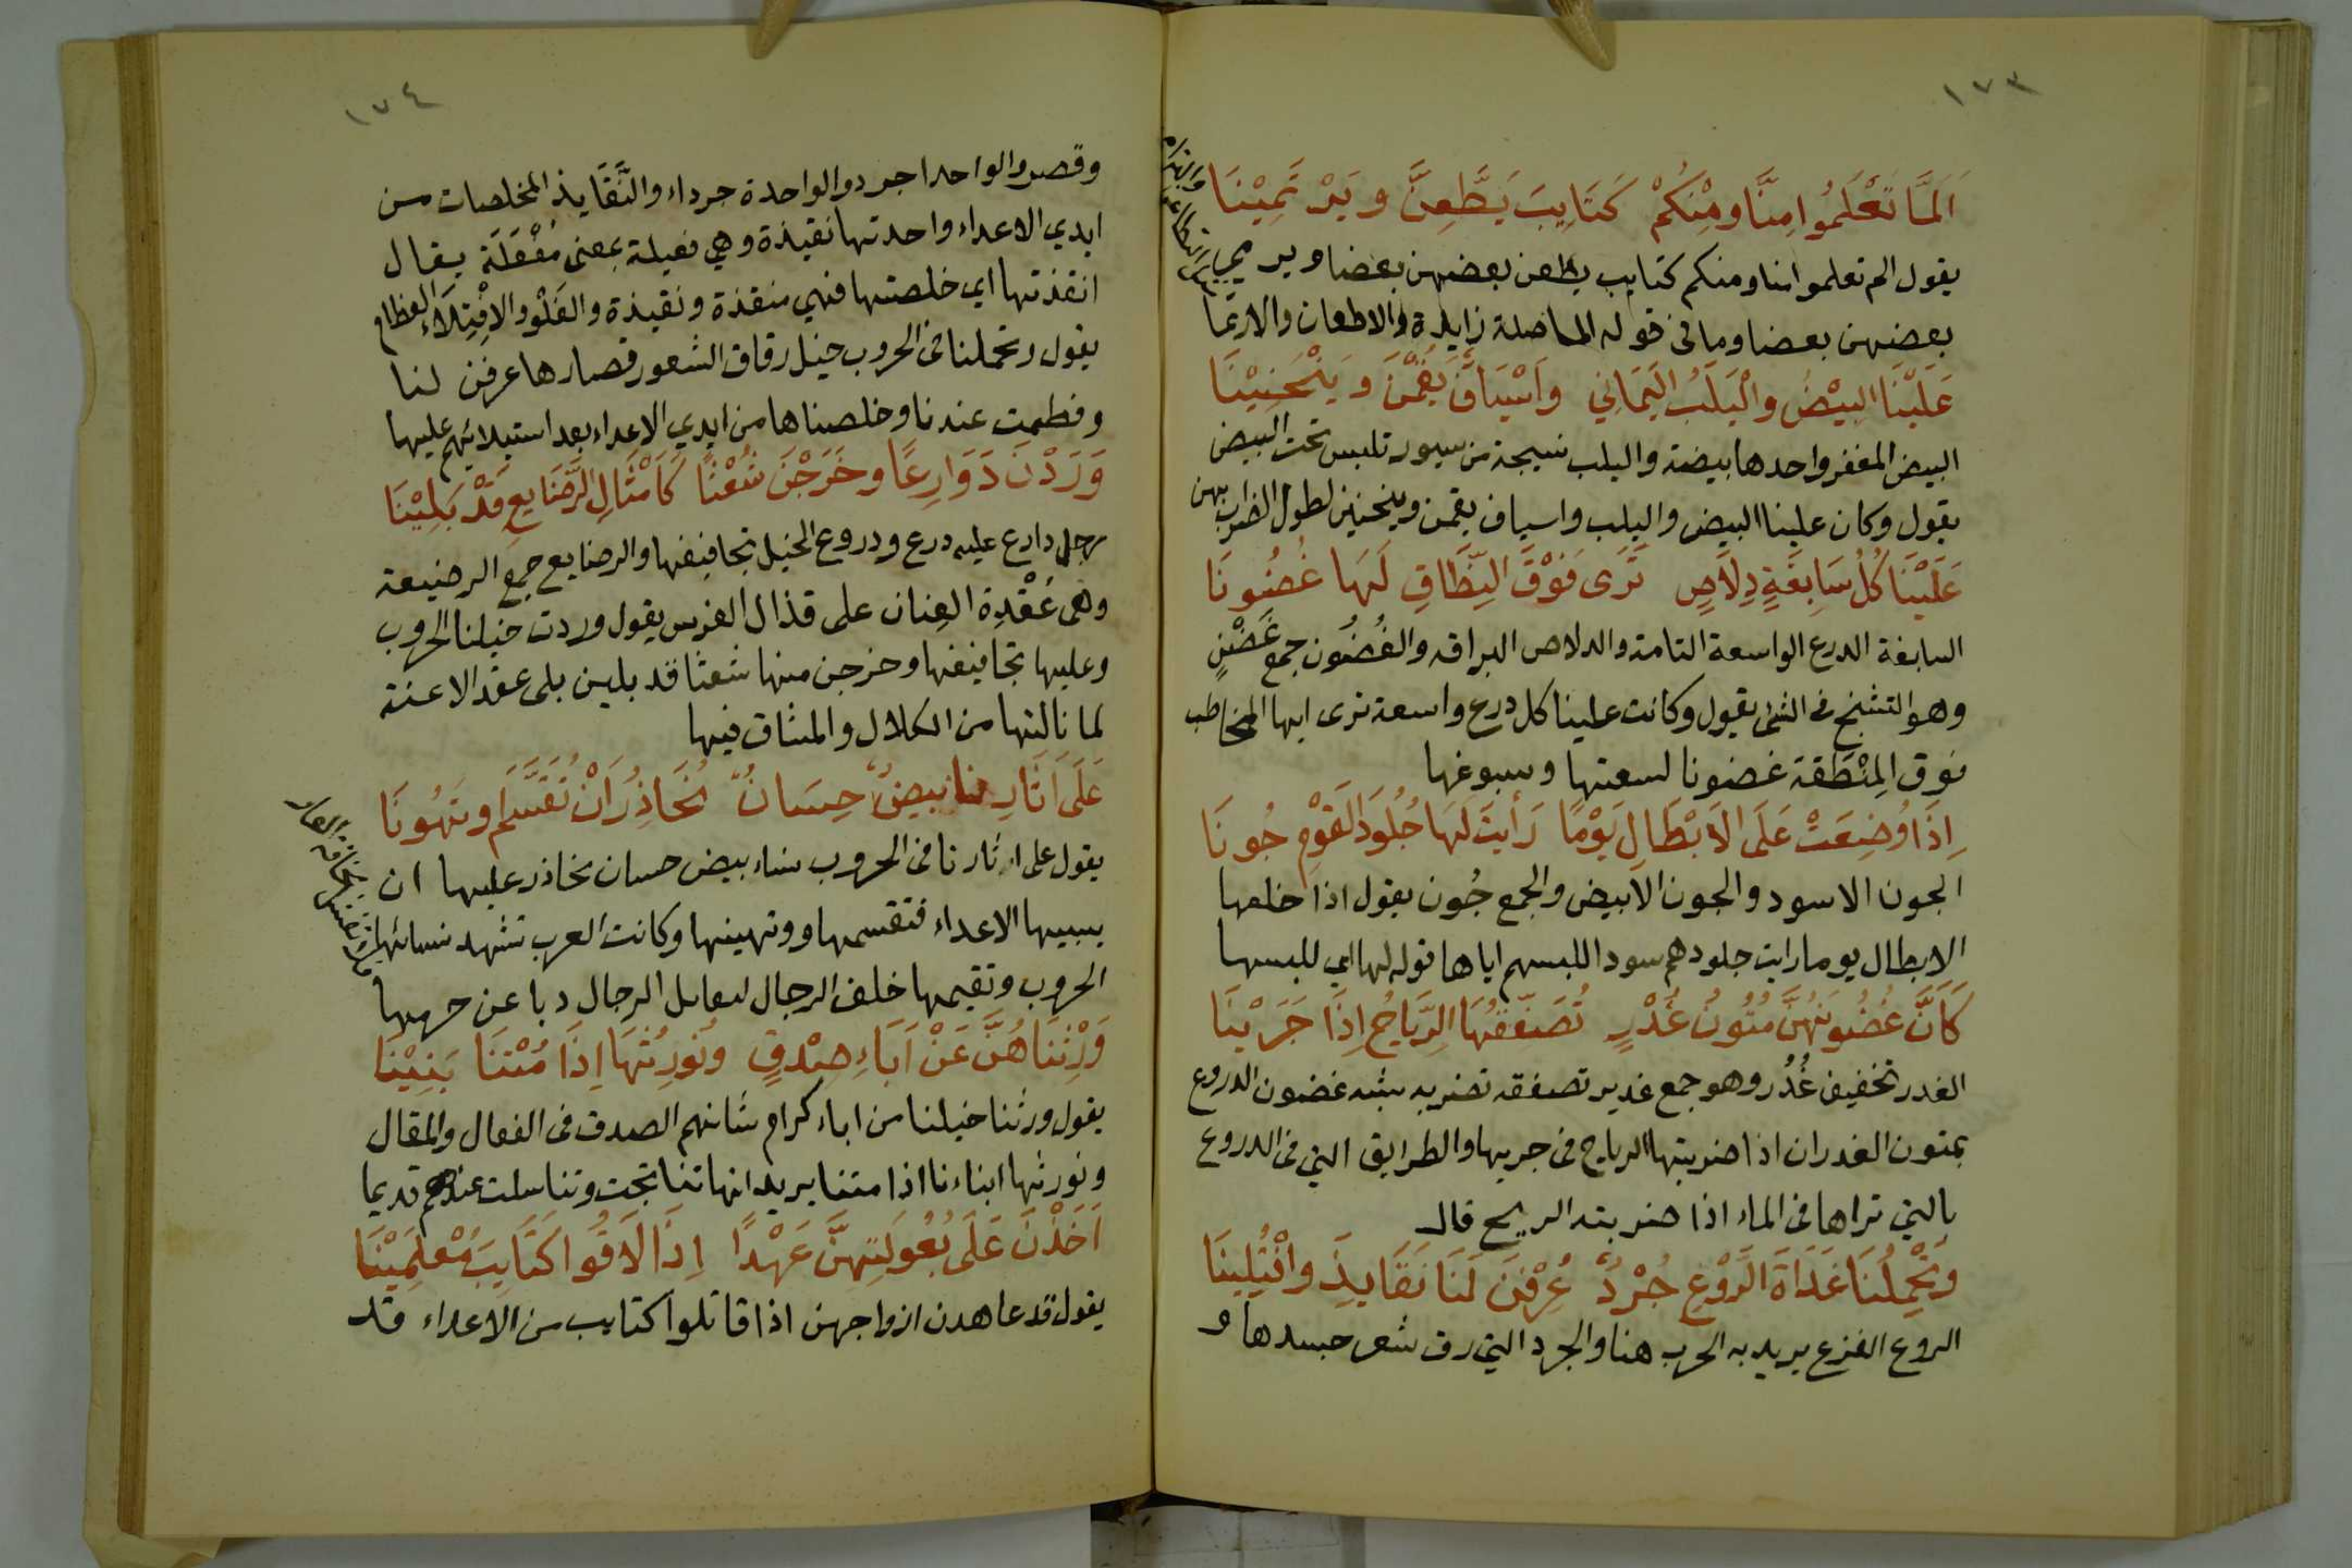 ١٧٣
اَلَمَّا تَعْلَمُوا مِنَّا وَمِنْكُمْ كَتَايِبَ يَطَّعِنَّ وَيَرْتَمِيْنَا
يقول الم تعلموا منا ومنكم كتايب يطعن بعضهن بعضا ويرمي
بعضهن بعضا وما في قوله الما صلة زايدة والاطعان والارتما
عَلَيْنَا البِيْضُ وَالْيَلَبُ اليَمَانِي وَاَسْيَافٌ يَقُمْنَ وَيَنْحَنِيْنَا
البيض المغفر واحدها بيضة واليلب نسيجة من سيور تلبس تحت البيض
يقول وكان علينا البيض واليلب واسياف يقمن وينحنين لطول الضراب بهن
عَلَيْنَا كُلُّ سَابِغَةٍ دِلَاصٍ تَرَى فَوْقَ النِّطَاقِ لَهَا غُضُونَا
السابغة الدرع الواسعة التامة والدلاص البراقه والغُضُون جمع غَضْنٍ
وهو التشنج في الشئ يقول وكانت علينا كل درع واسعة ترى ايها المخاطب
فوق المِنْطَقة غضونا لسعتها وسبوغها
اِذَا وُضِعَتْ عَلَى الاَبْطَالِ يَوْمًا رَأَيتَ لَهَا جُلُوَد القَوْمِ جُونَا
الجون الاسود والجون الابيض والجمع جُون يقول اذا خلعها
الابطال يوما رايت جلودهم سودا للبسهم اياها قوله لها اي للبسها
كَاَنَّ غُضُونَهُنَّ مُتُونُ غُدْرٍ تُصَفِّقُهَا الرِّيَاحُ اِذَا جَرَيْنَا
الغدر تخفيف غُدُر وهو جمع غدير تصفقه تضربه يشبه غضون الدروع
بمتون الغدران اذا ضربتها الرياح في جريها والطرايق التي في الدروع
بالتي تراها في الماء اذا ضربته الريح قال
وَتَحْمِلُنَا غَدَاةَ الرَّوْعِ جُرْدٌ عُرِفْنَ لَنَا نَقَايِذَ وَافْتُلِينَا
الروع الفزع يريد به الحرب هنا والجرد التي رق شعر جسدها و
١٧٤
وقصر والواحد اجرد والواحدة جرداء والنَّقَايذ المخلصات من
ايدي الاعداء واحدتها نقيذة وهي فعيلة بمعنى مُفْعَلَة يقال
انقذتها اي خلصتها فهي منقذة ونقيذة والفَلْو والافْتِلَاء الفطام
يقول وتحملنا في الحروب خيل رقاق الشعور قصارها عرفن لنا
وفطمت عندنا وخلصناها من ايدي الاعداء بعد استيلائهم عليها
وَرَدْنَ دَوَارِعًا وَخَرَجْنَ شُعْثًا كَاَمْثَالِ الرَّصَايِعِ قَدْ بَلِيْنَا
رجل دارع عليه درع ودروع الخيل تجافيفها والرصايع جمع الرصيعة
وهي عُقْدة العِنان على قذال الفرس يقول وردت خيلنا الحروب
وعليها تجافيفها وخرجن منها شعثا قد بلين بلى عقد الاعنة
لما نالتها من الكلال والمشاق فيها
عَلَى اَثَارِنا بِيضٌ حِسَانٌ نُحَاذِرُ اَنْ تُقَسَّمَ اوتَهُونَا
يقول على اثارنا في الحروب نساء بيض حسان نحاذر عليها ان
يسبيها الاعداء فتقسمها وتهينها وكانت العرب تشهد نسائها
الحروب وتقيمها خلف الرجال ليقاتل الرجال ذبا عن حرمها
وَرِثْنَاهُنَّ عَنْ اَبَاءِ صِدْقٍ وَنُورِثُهَا اِذَا مُتْنَا بَنِيْنَا
يقول ورثنا خيلنا من اباء كرام شانهم الصدق في الفعال والمقال
ونورثها ابناءنا اذا متنا يريد انها تناتجت وتناسلت عندهم قديما
اَخَذْنَ عَلَى بُعُولَتِهِنَّ عَهْدًا اِذَا لَاقُوا كَتَايِبَ مُعْلَمِيْنَا
يقول قد عاهدن ازواجهن اذا قاتلوا كتايب من الاعداء قد